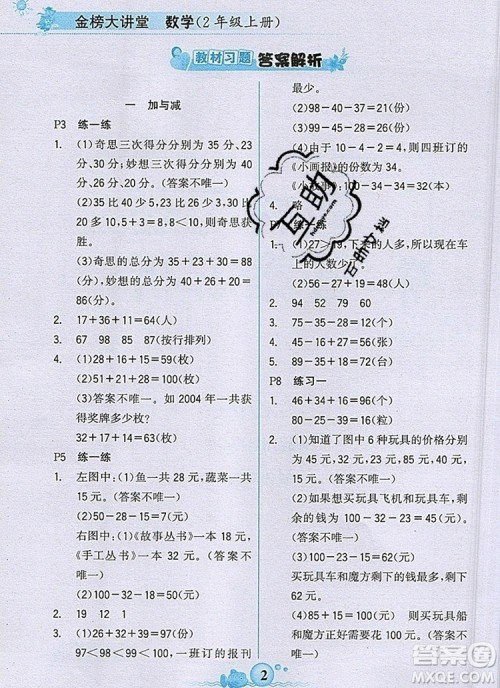 金榜大讲堂 数学(2年级上册)
教材习题 答案解析
一 加与减
P3 练一练
1. (1)奇思三次得分分别为35分、23分、
30分,妙想三次得分分别为33分、
24分、31分。(答案不唯一)
(2)35比33多2,24比23多1,31
比30多1,2+8=10,8<10,则奇思获
胜。
(3)奇思的总分为35+23+30=88
(分),妙想的总分为33+24+31=88
(分)。(答案不唯一)
2. 17+36+11=64(人)
3. 67 98 85 87(按行排列)
4. (1)28+16+15=59(枚)
(2)51+21+28=100(枚)
(3)答案不唯一。如 2004年一共获
得奖牌多少枚?
32+17+14=63(枚)
P5 练一练
1. 左图中:(1)鱼一共28元,蔬菜一共
15元。(答案不唯一)
(2)50-28-15=7(元)
右图中:(1)《故事丛书》一共18元,
《手工丛书》一本32元。(答案不
唯一)
(2)100-32-18=50(元)
2. 19 12 1
3. (1)24+32+41=97(份)
97<98<99<100,一班订的报刊
最少。
(2)98-40-37=21(份)
(3)99-45-28=26(份)
(4)由于10-4-2=4,则四班订的
《小画报》的份数为34。
100-34-34=32(份)
4. 略
练一练
1. (1)27>19,下来的人多,所以现在
车上的人数少了。
(2)56-27+19=48(人)
2. 94 52 79 60
3. 75-35-28=12(个)
4. 57-16+45=86(张)
5. 89-35+18=72(台)
P8 练习一
1. 34+16+46=96(个)
80-25-39=16(粒)
2. (1)知道了图中6种玩具的价格分别
是多少元。(答案不唯一)
(2)如果想买玩具飞机和玩具车,剩
余的钱为100-51-34=15(元)。
(答案不唯一)
(3)100-34-53=13(元)
买玩具车和魔方剩下的钱与买玩具
车和魔方剩下的钱一样多。
(4)85+15=100(元) P同买玩具船
和魔方正好花完100元。(答案不
唯一)
2
互助
互助文档